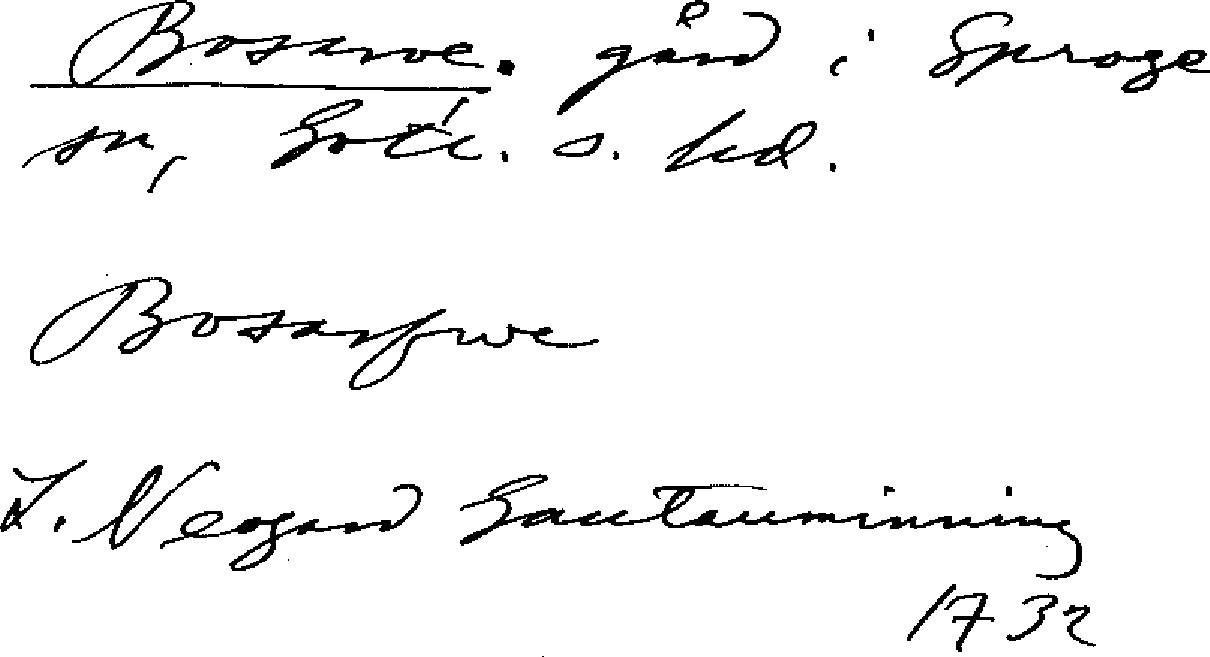 Bosarve. gård i Sproge
sn, Gotl. s. hd.
Bosarfwe
L. Neogard Gautauminning
1732